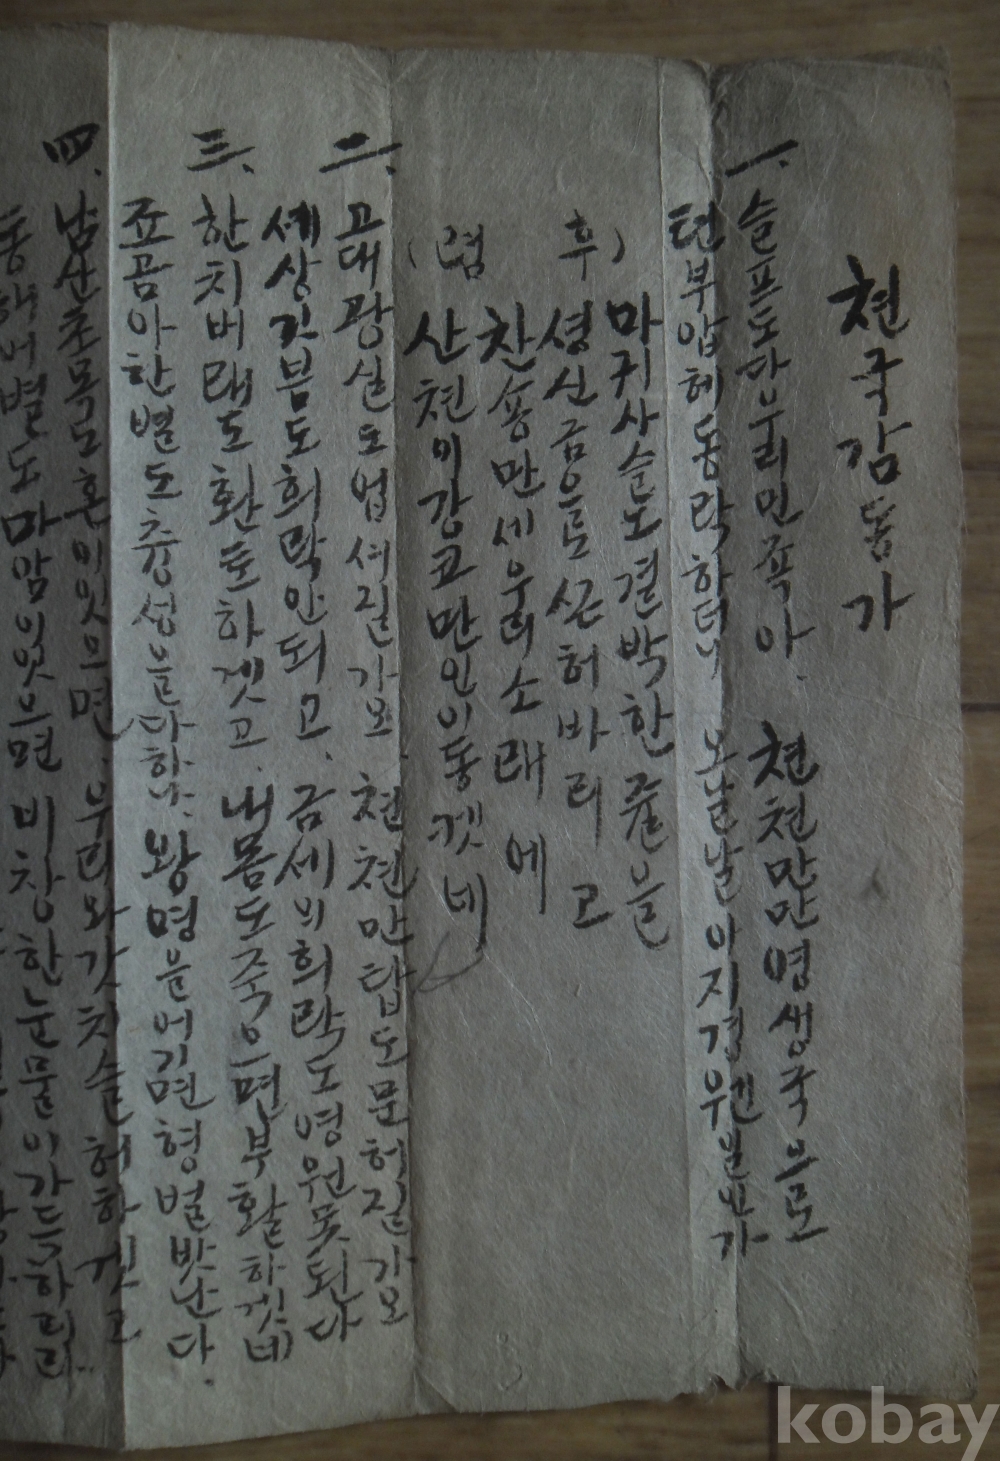 천국감동가
一、 슬프도다우리민족아. 천천만만영생국으로
텬부압헤동락하더니 오날날이지경웬말인가
(후렴)
마귀사슬노결박한쥴을
셩신금으로 허바리고
찬숑만세우리소래에
산쳔이강코만인이동켓네
二、 고대광실도업서질가오 쳔쳔만탑도문허질가오
세상깃븜도희락안되고. 금세의희락도영원못된다
三、 한치버래도환토하겟고. 내몸도죽으면부활하겟네
죠곰아한별도츙성을다하나. 왕명을어기면형벌밧난다.
四、 남산초목도혼이잇으면. 우리와갓치슬허하겟고
동해어별도마암이잇으면 비창한눈물이가득하리라.
kobay